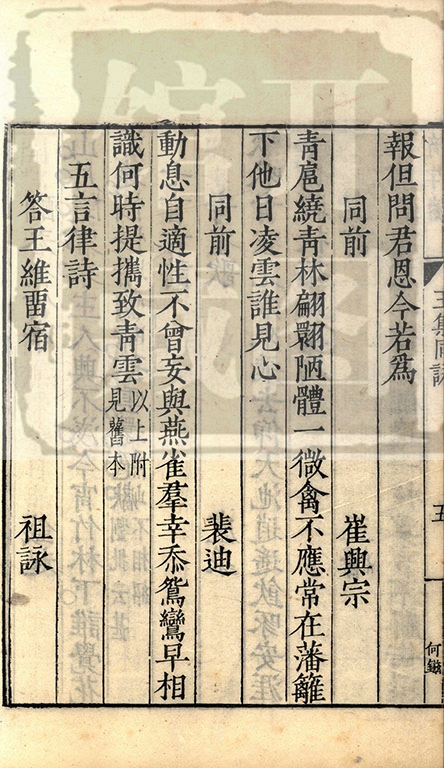 報但問君恩今若爲
同前 崔興宗
青扈繞青林翩翾陋體一微禽不應常在藩籬
下他日凌雲誰見心
同前 裴迪
動息自適性不曾妄與燕雀羣幸忝鴛鸞早相
識何時提攜致青雲以上附見舊本
五言律詩
答王維畱宿 祖詠
五
何鎡